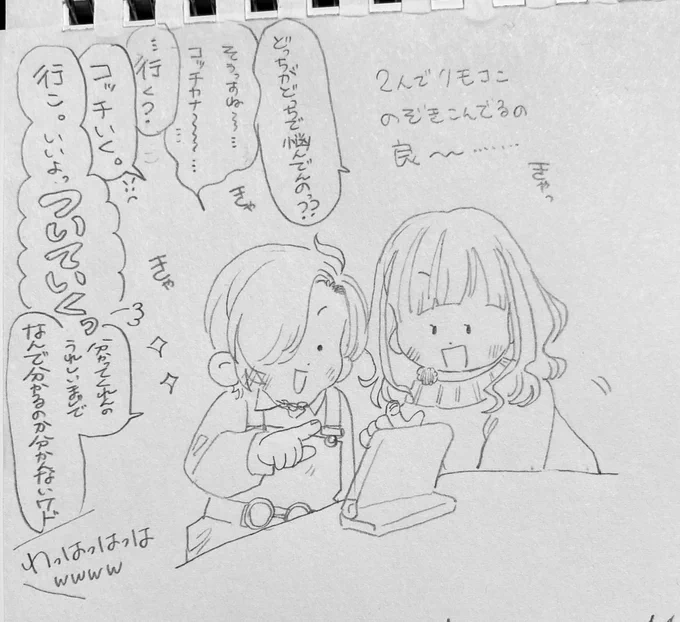 2人でリモコン
のぞきこんでるの
良〜〜……
きゃっ
どっちがどっちで悩んでんのっ??
そぉっすね〜…
コッチカナ〜〜〜…
…行く?
コッチいく。
行こ。いいよっ
ついていくっ
きゃ
きゃ
分かってくれんの
うれしいまであって
なんで分かるのか分かんないワード
わっはっはっは
wwww